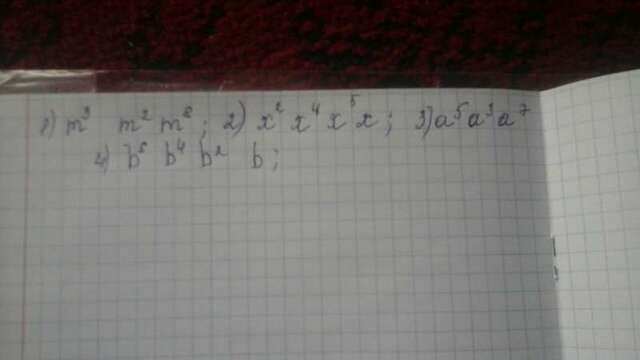 1) m³ m² m⁸; 2) x² x⁴ x⁵ x; 3) a⁵ a³ a⁷
4) b⁵ b⁴ b² b;